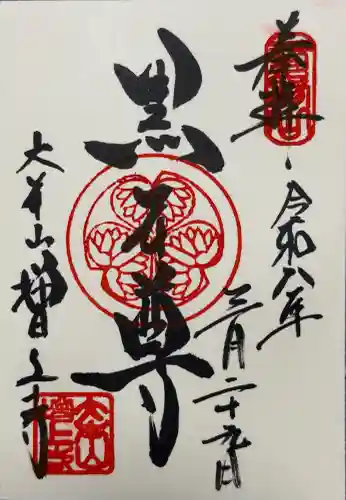 奉拝
令和八年
三月二十九日
黒本尊
大本山増上寺
大本山
増上寺